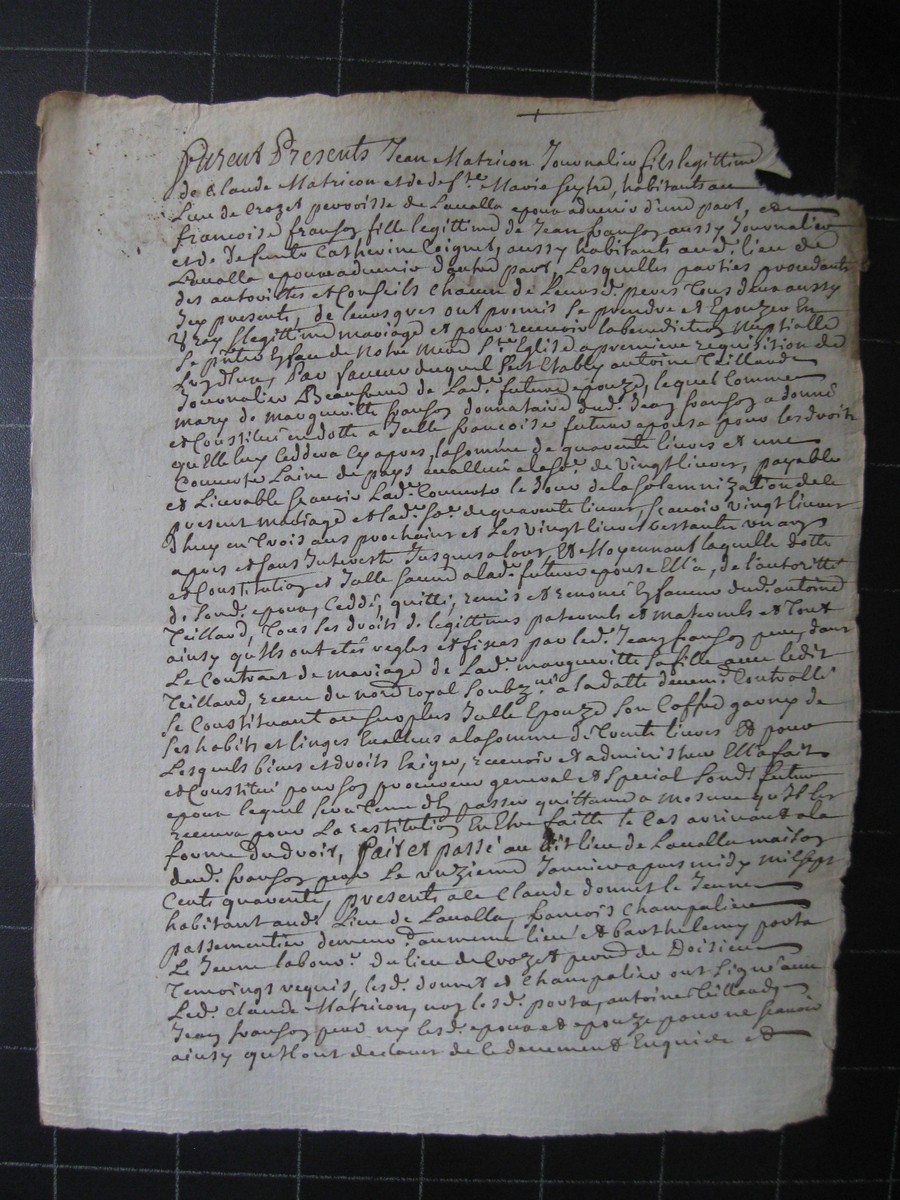 furent Presents Jean Matricon Journalier fils legittime
de Claude Matricon et de deff.te Marie seytre, habitants au
Lieu de Crozet perroisse de Lavalla epoux advenir d'une part, et
francoise franson fille legittime de Jean franson aussy Journalier
et de defunte Catherine Coignet, aussy habitants aud. lieu de
Lavalla epouze advenir d'autre part, Lesquelles parties procedants
des autorittes et Conseils chacun de Leursd. peres tous deux aussy
Icy presents, de leurs gres ont promis se prendre et Epouzer En
vray et legittime mariage et pour recevoir la benediction Nuptialle
se pnter En face de Notre mere S.te Eglise a premiere requisition de
L'un d'eux, Par faveur duquel s'est Etably antoine Teillard
Journalier Beaufrere de Lad. future epouze, lequel Comme
mary de margueritte franson donnataire dud. Jean franson a donné
et Constitué en dotte a Jalle francoise future epouse pour les droits
qu'Elle luy ceddera Cy apres, la somme de quarante livres et une
Couverte Laine de pays evalluée a la so.e de vingt livres, payable
et Livrable scavoir Lad. Couverte le Jour de la solemnization de le
present mariage et lad. so.e de quarante livres, scavoir vingt livres
d'huy en trois ans prochains et Les vingt livres restante un an
apres et sans Interests Jusques alors, Et Moyennant laquelle dotte
et Constitution et Jalle faveur a lad. future epouse Ell'a, de l'autoritté
de sond. epoux, Ceddé, quitté, remis et renoncé En faveur dud. antoine
Teillard, Tous ses droits de legittimes paternels et maternels et Tout
ainsy qu'Ils ont etés regles et fixés par led. Jean franson pere, dans
Le Contrat de mariage de Lad. margueritte sa fille avec ledit
Teillard, receu du no.re royal soubz.né a sa datte deuem.t Controllé
se Constituant au surplus Jalle Epouze son Coffre garny de
ses habits et linges Evallués a la somme de Trente livres Et pour
Lesquels biens et droits Exiger, recevoir et administrer Ell'a fait
et Constitué pour son procureur general et special sond. futur
epoux lequel sera tenu d'En passer quittance a mesure qu'Il les
recevra pour La restitution En Etre faitte le Cas arrivant a la
forme du droit, fait et passé au dit lieu de Lavalla maison
dud. franson pere Le unzieme Janvier apres midy mil sept
Cents quarante, presents a Ce Claude donnet le Jeune
habitant aud. Lieu de Lavalla, francois Champalier
passementier demeur.t au meme lieu et Barthelemy porta
Le Jeune labour.r du lieu de Crozet p.sse de Doisieu
Temoings requis, lesd. donnet et Champalier ont signé avec
Led. Claude Matricon, non lesd. porta, antoine Teillard,
Jean franson pere ny lesd. epoux et epouze pour ne scavoir
ainsy qu'Ils ont declarés de le deuement Enquis et